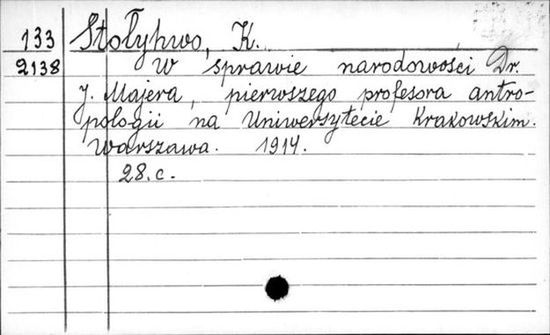 133 Stołyhwo, K.
2138 W sprawie narodowości Dr.
J. Majera, pierwszego profesora antro-
pologii na Uniwersytecie Krakowskim.
Warszawa. 1914.
28. c.